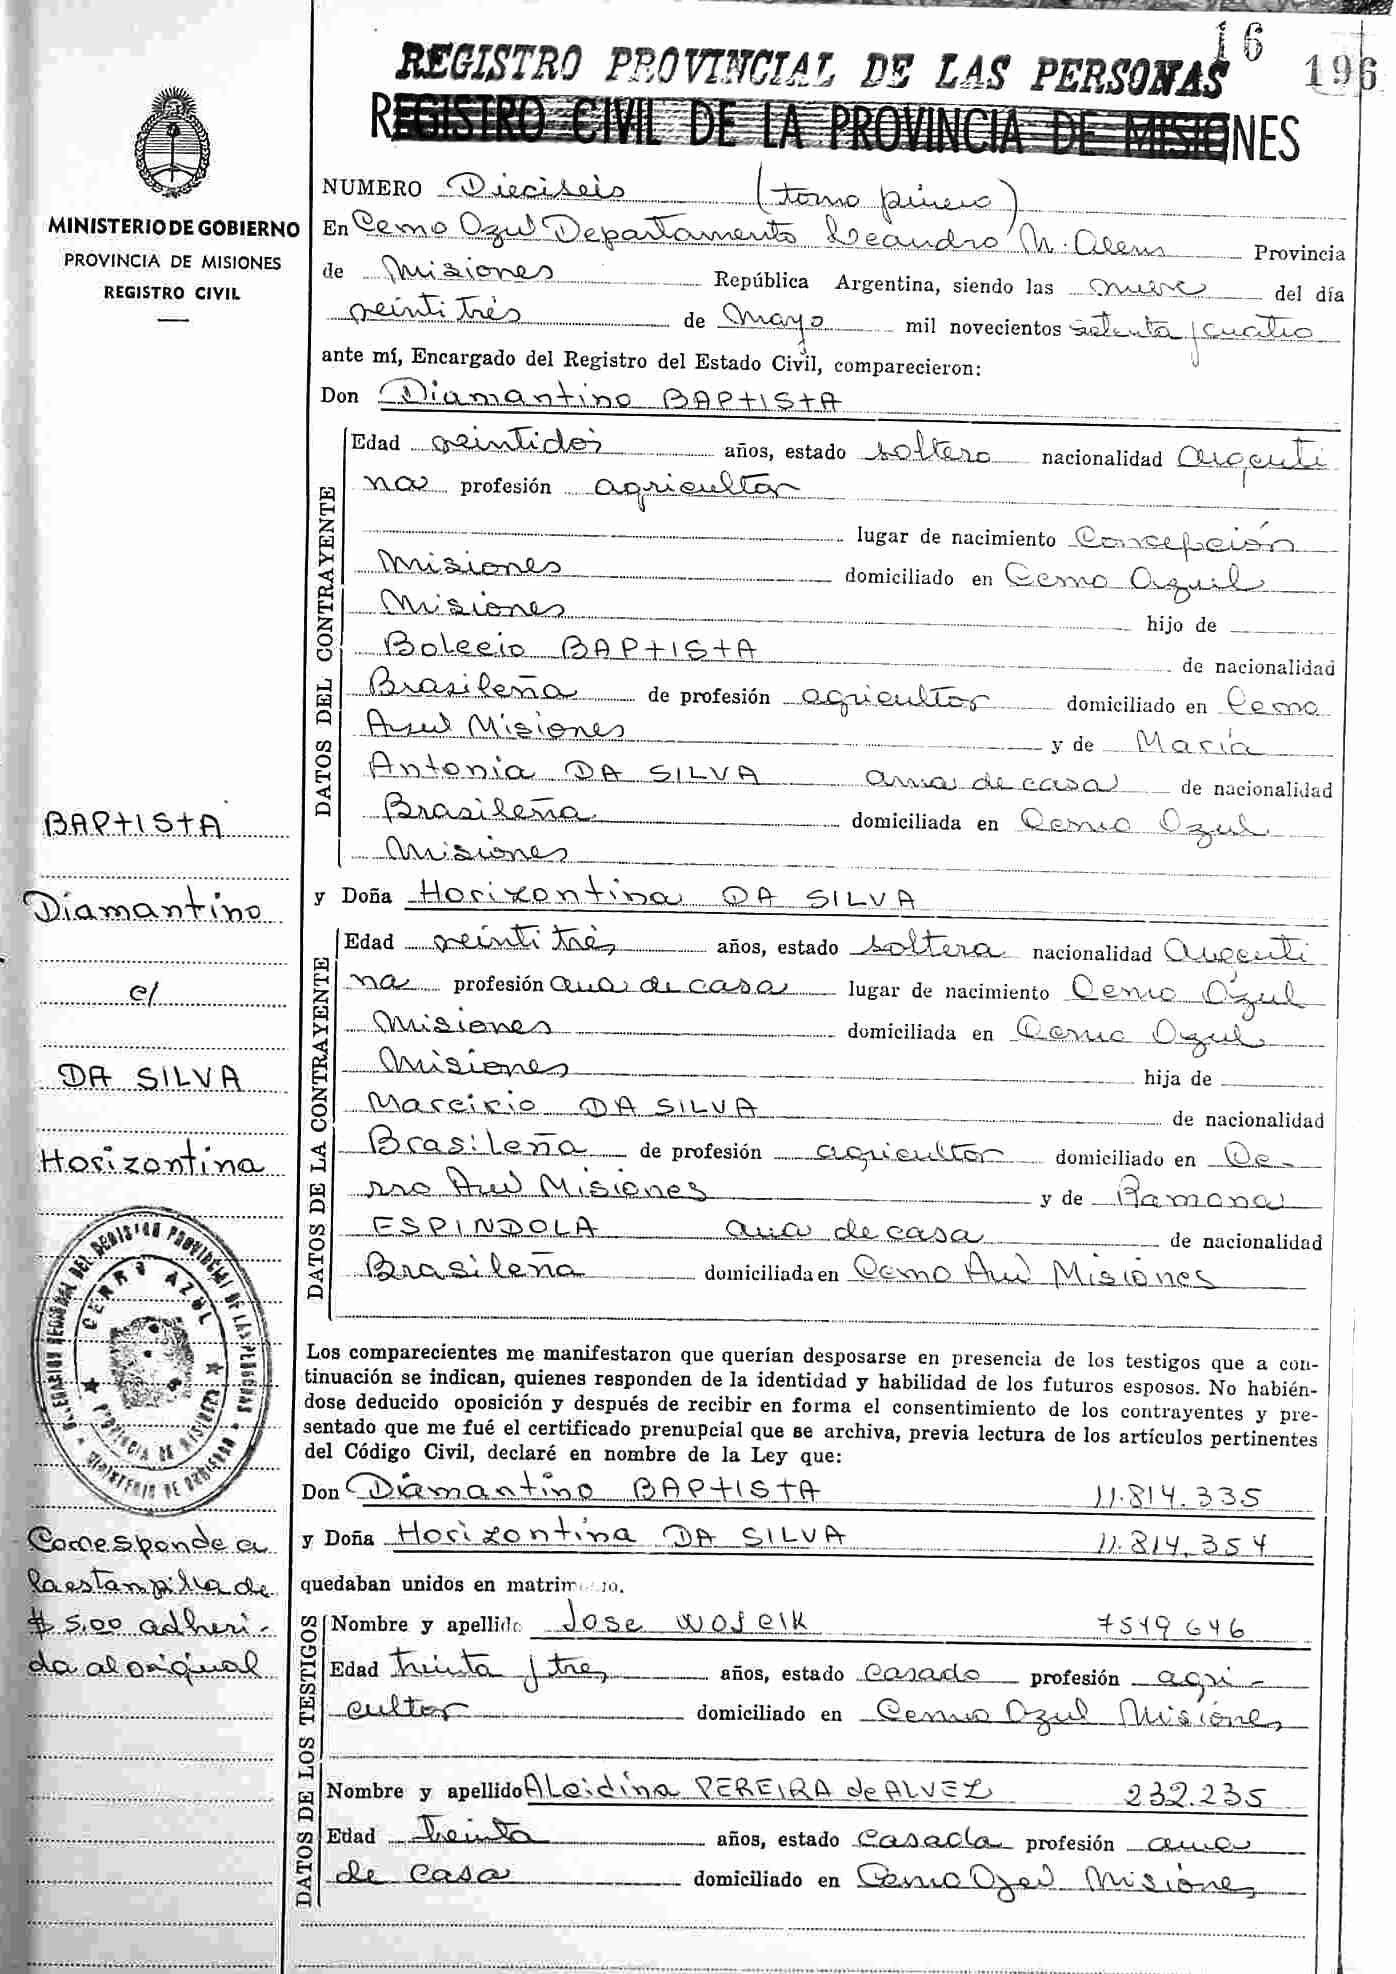 16
196
REGISTRO PROVINCIAL DE LAS PERSONAS
REGISTRO CIVIL DE LA PROVINCIA DE MISIONES
MINISTERIO DE GOBIERNO
PROVINCIA DE MISIONES
REGISTRO CIVIL
NUMERO Dieciseis (tomo primero)
En Cerro Azul Departamento Leandro N. Alem Provincia
de Misiones República Argentina, siendo las nueve del día
veintitrés de Mayo mil novecientos setenta y cuatro
ante mí, Encargado del Registro del Estado Civil, comparecieron:
Don Diamantino BAPtIStA
DATOS DEL CONTRAYENTE
Edad veintidos años, estado soltero nacionalidad argenti
na profesión agricultor
lugar de nacimiento Concepción
Misiones domiciliado en Cerro Azul
Misiones hijo de
Bolecio BAPtIStA de nacionalidad
Brasileña de profesión agricultor domiciliado en Cerro
Azul Misiones y de María
Antonia DA SILVA ama de casa de nacionalidad
Brasileña domiciliada en Cerro Azul
Misiones
BAPtIStA
Diamantino
c/
DA SILVA
Horizontina
y Doña Horizontina DA SILVA
DATOS DE LA CONTRAYENTE
Edad veintitrés años, estado soltera nacionalidad argenti
na profesión ama de casa lugar de nacimiento Cerro Azul
Misiones domiciliada en Cerro Azul
Misiones hija de
Marcirio DA SILVA de nacionalidad
Brasileña de profesión agricultor domiciliado en Ce-
rro Azul Misiones y de Ramona
ESPINDOLA ama de casa de nacionalidad
Brasileña domiciliada en Cerro Azul Misiones
CERRO AZUL
PROVINCIA DE MISIONES
Los comparecientes me manifestaron que querían desposarse en presencia de los testigos que a con-
tinuación se indican, quienes responden de la identidad y habilidad de los futuros esposos. No habién-
dose deducido oposición y después de recibir en forma el consentimiento de los contrayentes y pre-
sentado que me fué el certificado prenupcial que se archiva, previa lectura de los artículos pertinentes
del Código Civil, declaré en nombre de la Ley que:
Don Diamantino BAPtIStA 11.814.335
y Doña Horizontina DA SILVA 11.814.354
quedaban unidos en matrimonio.
Corresponde a
la estampilla de
$ 5.00 adheri-
da al original
DATOS DE LOS TESTIGOS
Nombre y apellido Jose WOJCIK 7519646
Edad treinta y tres años, estado casado profesión agri-
cultor domiciliado en Cerro Azul Misiones
Nombre y apellido ALcidina PEREIRA de ALVEZ 232.235
Edad Treinta años, estado casada profesión ama
de casa domiciliado en Cerro Azul Misiones